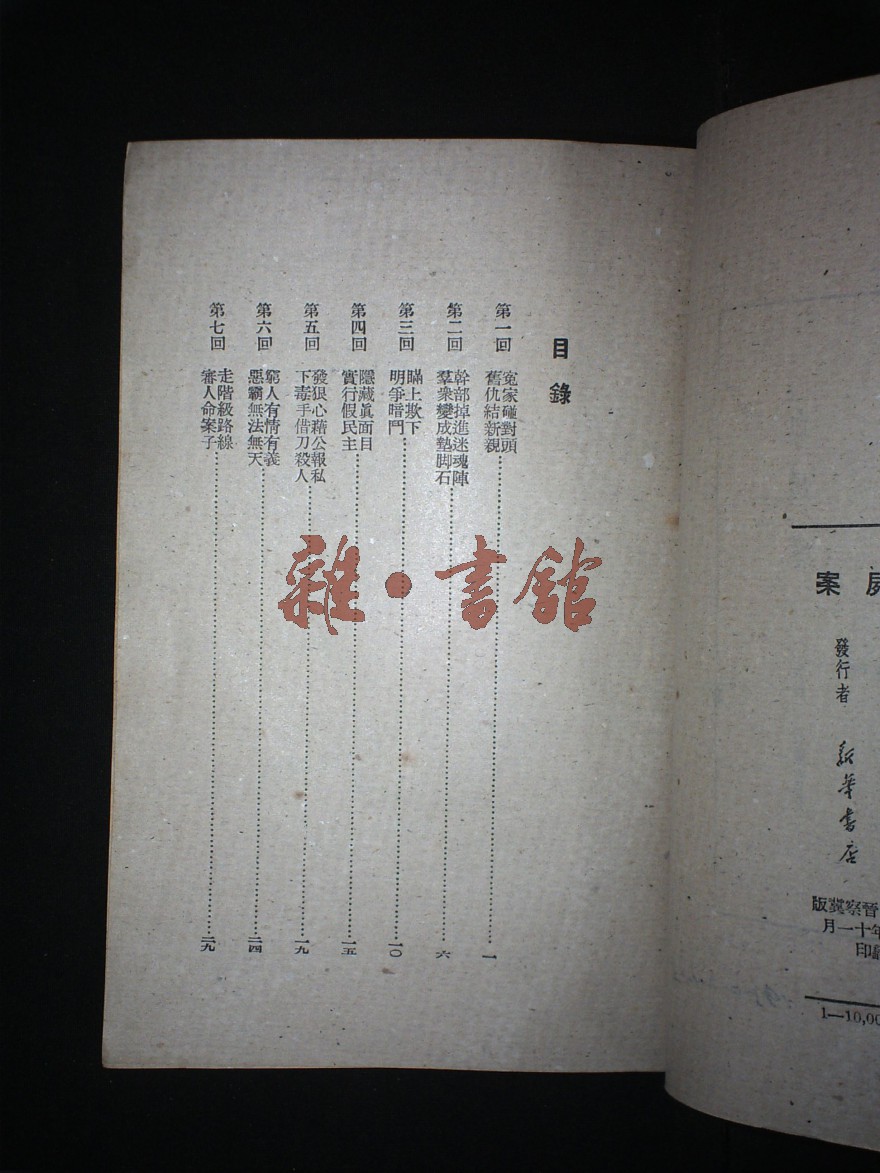 目錄
第一回 冤家碰對頭
舊仇結新親
一
第二回 幹部掉進迷魂陣
羣衆變成墊脚石
六
第三回 瞞上欺下
明爭暗鬥
一〇
第四回 隱藏眞面目
實行假民主
一五
第五回 發狠心藉公報私
下毒手借刀殺人
一九
第六回 窮人有情有義
惡霸無法無天
二四
第七回 走階級路線
審人命案子
二九
雜·書館
案
發行者 新華書店
晉察冀版
年十一月
印
1—10,00